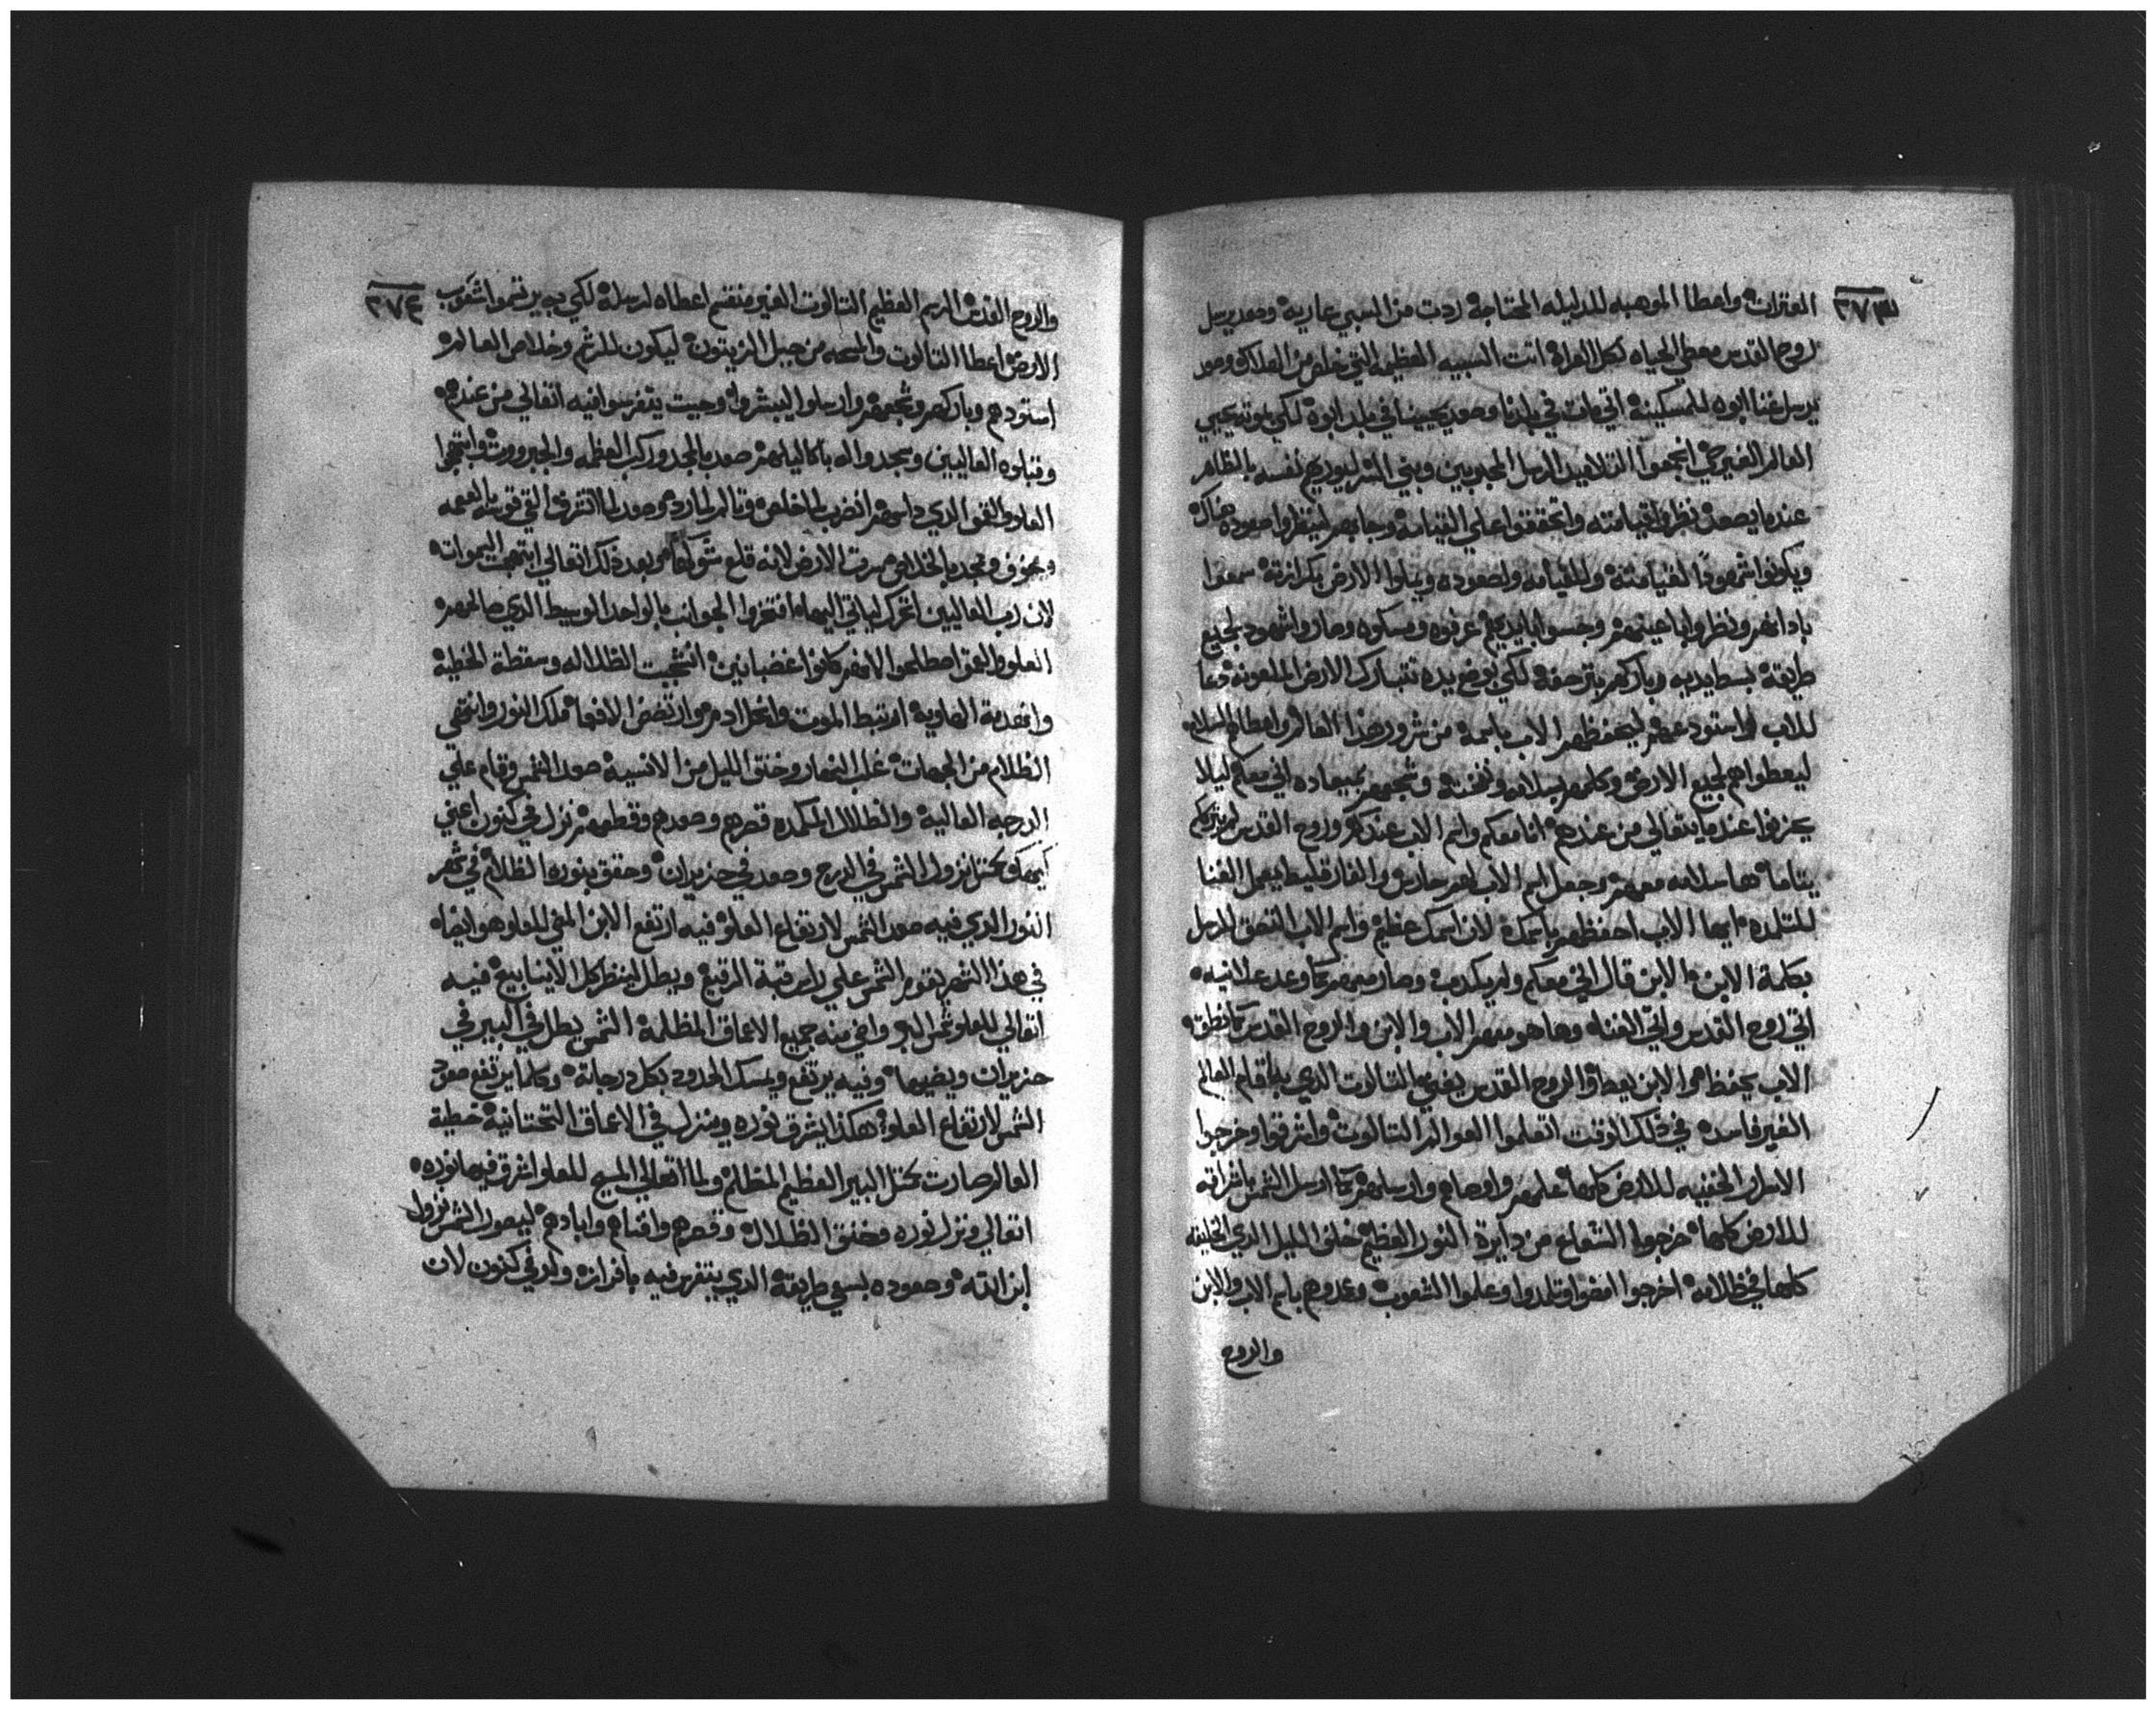 ٣٧٣
العترات واعطا الموهبه للدليله المحتاجة ردت من السبي عارية وصعد يرسل
روح القدس معطي الحياه لكل العراة اتت السبيه العظيمه التي خلص من الهلاك وصعد
يرسل غنا ابوه للمسكينة اتي مات في بلدنا وصعد يحيينا في بلد ابوه لكي بموته يحيي
العالم الغير حي اجمعوا التلاميد الرسل المحبوبين وبني السر ليوريهم نفسه بالظاهر
عندما يصعد نظروا قيامته واتحققوا علي القيامة وجابهم لينظروا صعوده هناك
ويكونوا شهودًا لقيامته وللقيامه ولصعوده ويملوا الارض بكرازته سمعوا
بادانهم ونظروا باعينهم وجسوا بايديهم عرفوه ومسكوه وصاروا شهود لجميع
طريقة بسط يديه وباركهم بترحفه لكي بوضع يده تتبارك الارض الملعونة دعا
للاب استودعهم ليحفظهم الاب باسمه من شرور هذا العالم واعطاهم السلامه
ليعطواهم لجميع الارض وكلمهم بسلامه ونفخته وشجعهم بميعاده اني معكم ليلا
يحزنوا عندما يتعالي من عندهم انا معكم واسم الاب عندكم وروح القدس لم يترككم
يتاما ها سلامه معهم وجعل اسم الاب لهم حارس والفارقليط يعمل الغنا
للتلمده ايها الاب احفظهم باسمك لان اسمك عظيم واسم الاب التصق للرسل
بكلمة الابن الابن قال اني معكم ولم يكدب وصار معهم كما وعد علانيه
اتي روح القدس واتي الغناه وها هو معهم الاب والابن والروح القدس كما نطق
الاب يحفظ والابن يعطا والروح القدس يغني التالوت الدي به قام العالم
الغير فاسده في ذلك الوقت اتعلموا العوالم التالوت وانترقوا وخرجوا
الاسرار الخفيه للارض كلها علمهم واوصاهم وارسلهم كما ارسل الشمس باشراقه
للارض كلها خرجوا الشعاع من دايرة النور العظيم خلق الليل الدي الخليقه
كلها في ظلامه اخرجوا امضوا وتلمدوا وعلموا الشعوب وعمدوهم باسم الاب والابن
والروح
٣٧٤
والروح القدس الاسم العظيم التالوت الغير منقسم اعطاه لرسله لكي به يرتسموا شعوب
الارض اعطا التالوت والمسحه من جبل الزيتون ليكون للرشم وخلاص العالم
استودهم وباركهم وشجعهم وارسلوا ليبشروا وحيت يتفرسوا فيه اتعالي من عندهم
وقبلوه العاليين ومجدواله باكاليلهم صعد بالمجد وركب العظمه والجبروت وابتهجوا
العلو والعمق الدي داسهم انضرب لما خلص وتالم لما رد وصعد لما اشرق التي قوته بالعجمه
وبخوف ومجد بالخلاص سرت الارض لانه قلع شوكها وبعد ذلك اتعالي ابتهجت السموات
لان رب العاليين اتحرك لياتي اليهم افتخروا الجوانب بالواحد الوسيط الدي صالحهم
العلو والعمق اصطلحوا لانهم كانوا غضبانين اتشجبت الظلاله وسقطة الخطية
وانهدية الهاوية ارتبط الموت وانحل ادم وارتضض الافعا ملك النور وانتهي
الظلام من الجهات غلب النهار وخنق الليل من الانسية صعد الشمس وقام علي
الدرجه العالية والظلال المكمده قهرهم وصعدهم وقطعهم نزل في كنون اعني
كيهك بمتل نزول الشمس في الدرج وصعد في حزيران وحقق بنوره الظلام في شهر
النور الدي فيه صعد الشمس لارتفاع العلو فيه ارتفع الابن المني للعلو هو ايضا
في هذا الشهر يقوم الشمس علي راس قبة الرقيع ويطل لينظر كل الاينابيع فيه
اتعالي للعلو شمس البر واضي منه جميع الاعماق المظلمة الشمس يطل في البير في
حزيران ويضيها وفيه يرتفع ويمسك الحدود بكل درجاته وكلما يرتفع صعود
الشمس لارتفاع العلو هكذا يشرق نوره وينزل في الاعماق التحتانية خطية
العالم صارت بمتل البير العظيم المظلم ولما اتعالي المسيح للعلو اشرق فيها نوره
اتعالي ونزل نوره وخنق الظلال وقهرهم وافناهم وابادهم ليصور الشمس نزول
ابن الله وصعوده بسعي طريقه الدي يتفرس فيه بافرازه ولد في كنون لان